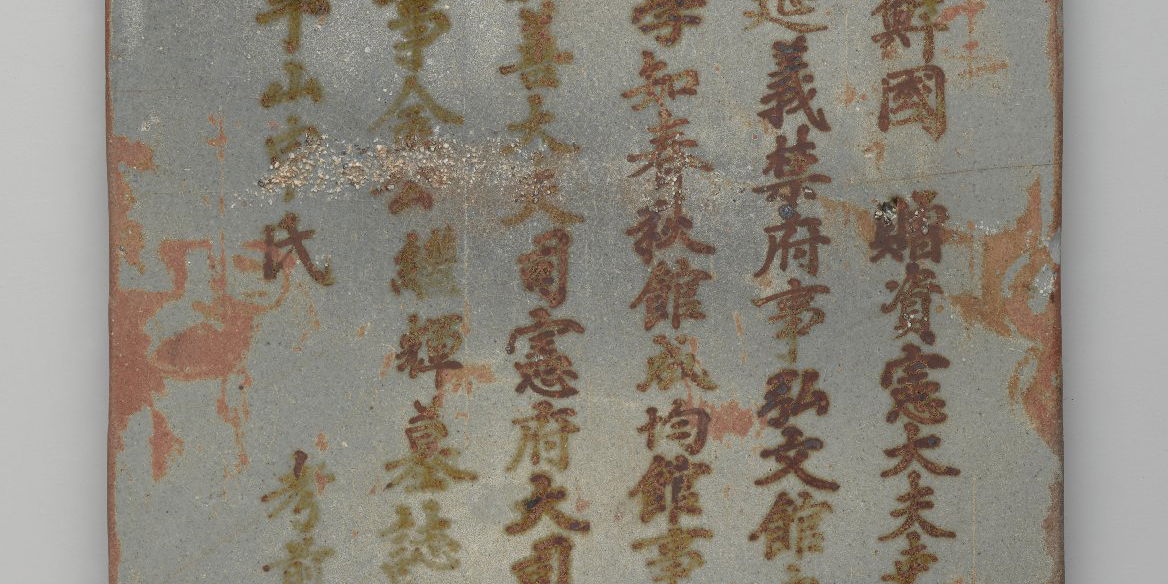 鮮國 贈資憲大夫吏
義禁府事弘文館
學知春秋館成均館事
善大夫司憲府大司
事金公繼輝墓誌
平山申氏 考